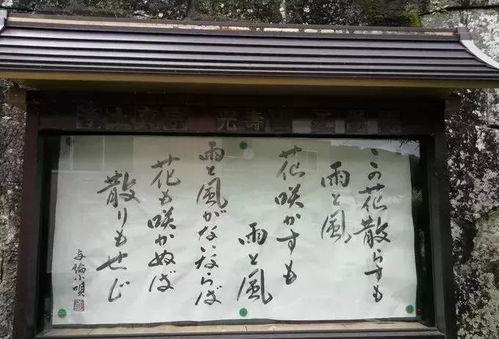 この花散らすも
雨と風
花咲かすも
雨と風
雨と風がないならば
花も咲かぬば
散りもせじ
与倫小唄